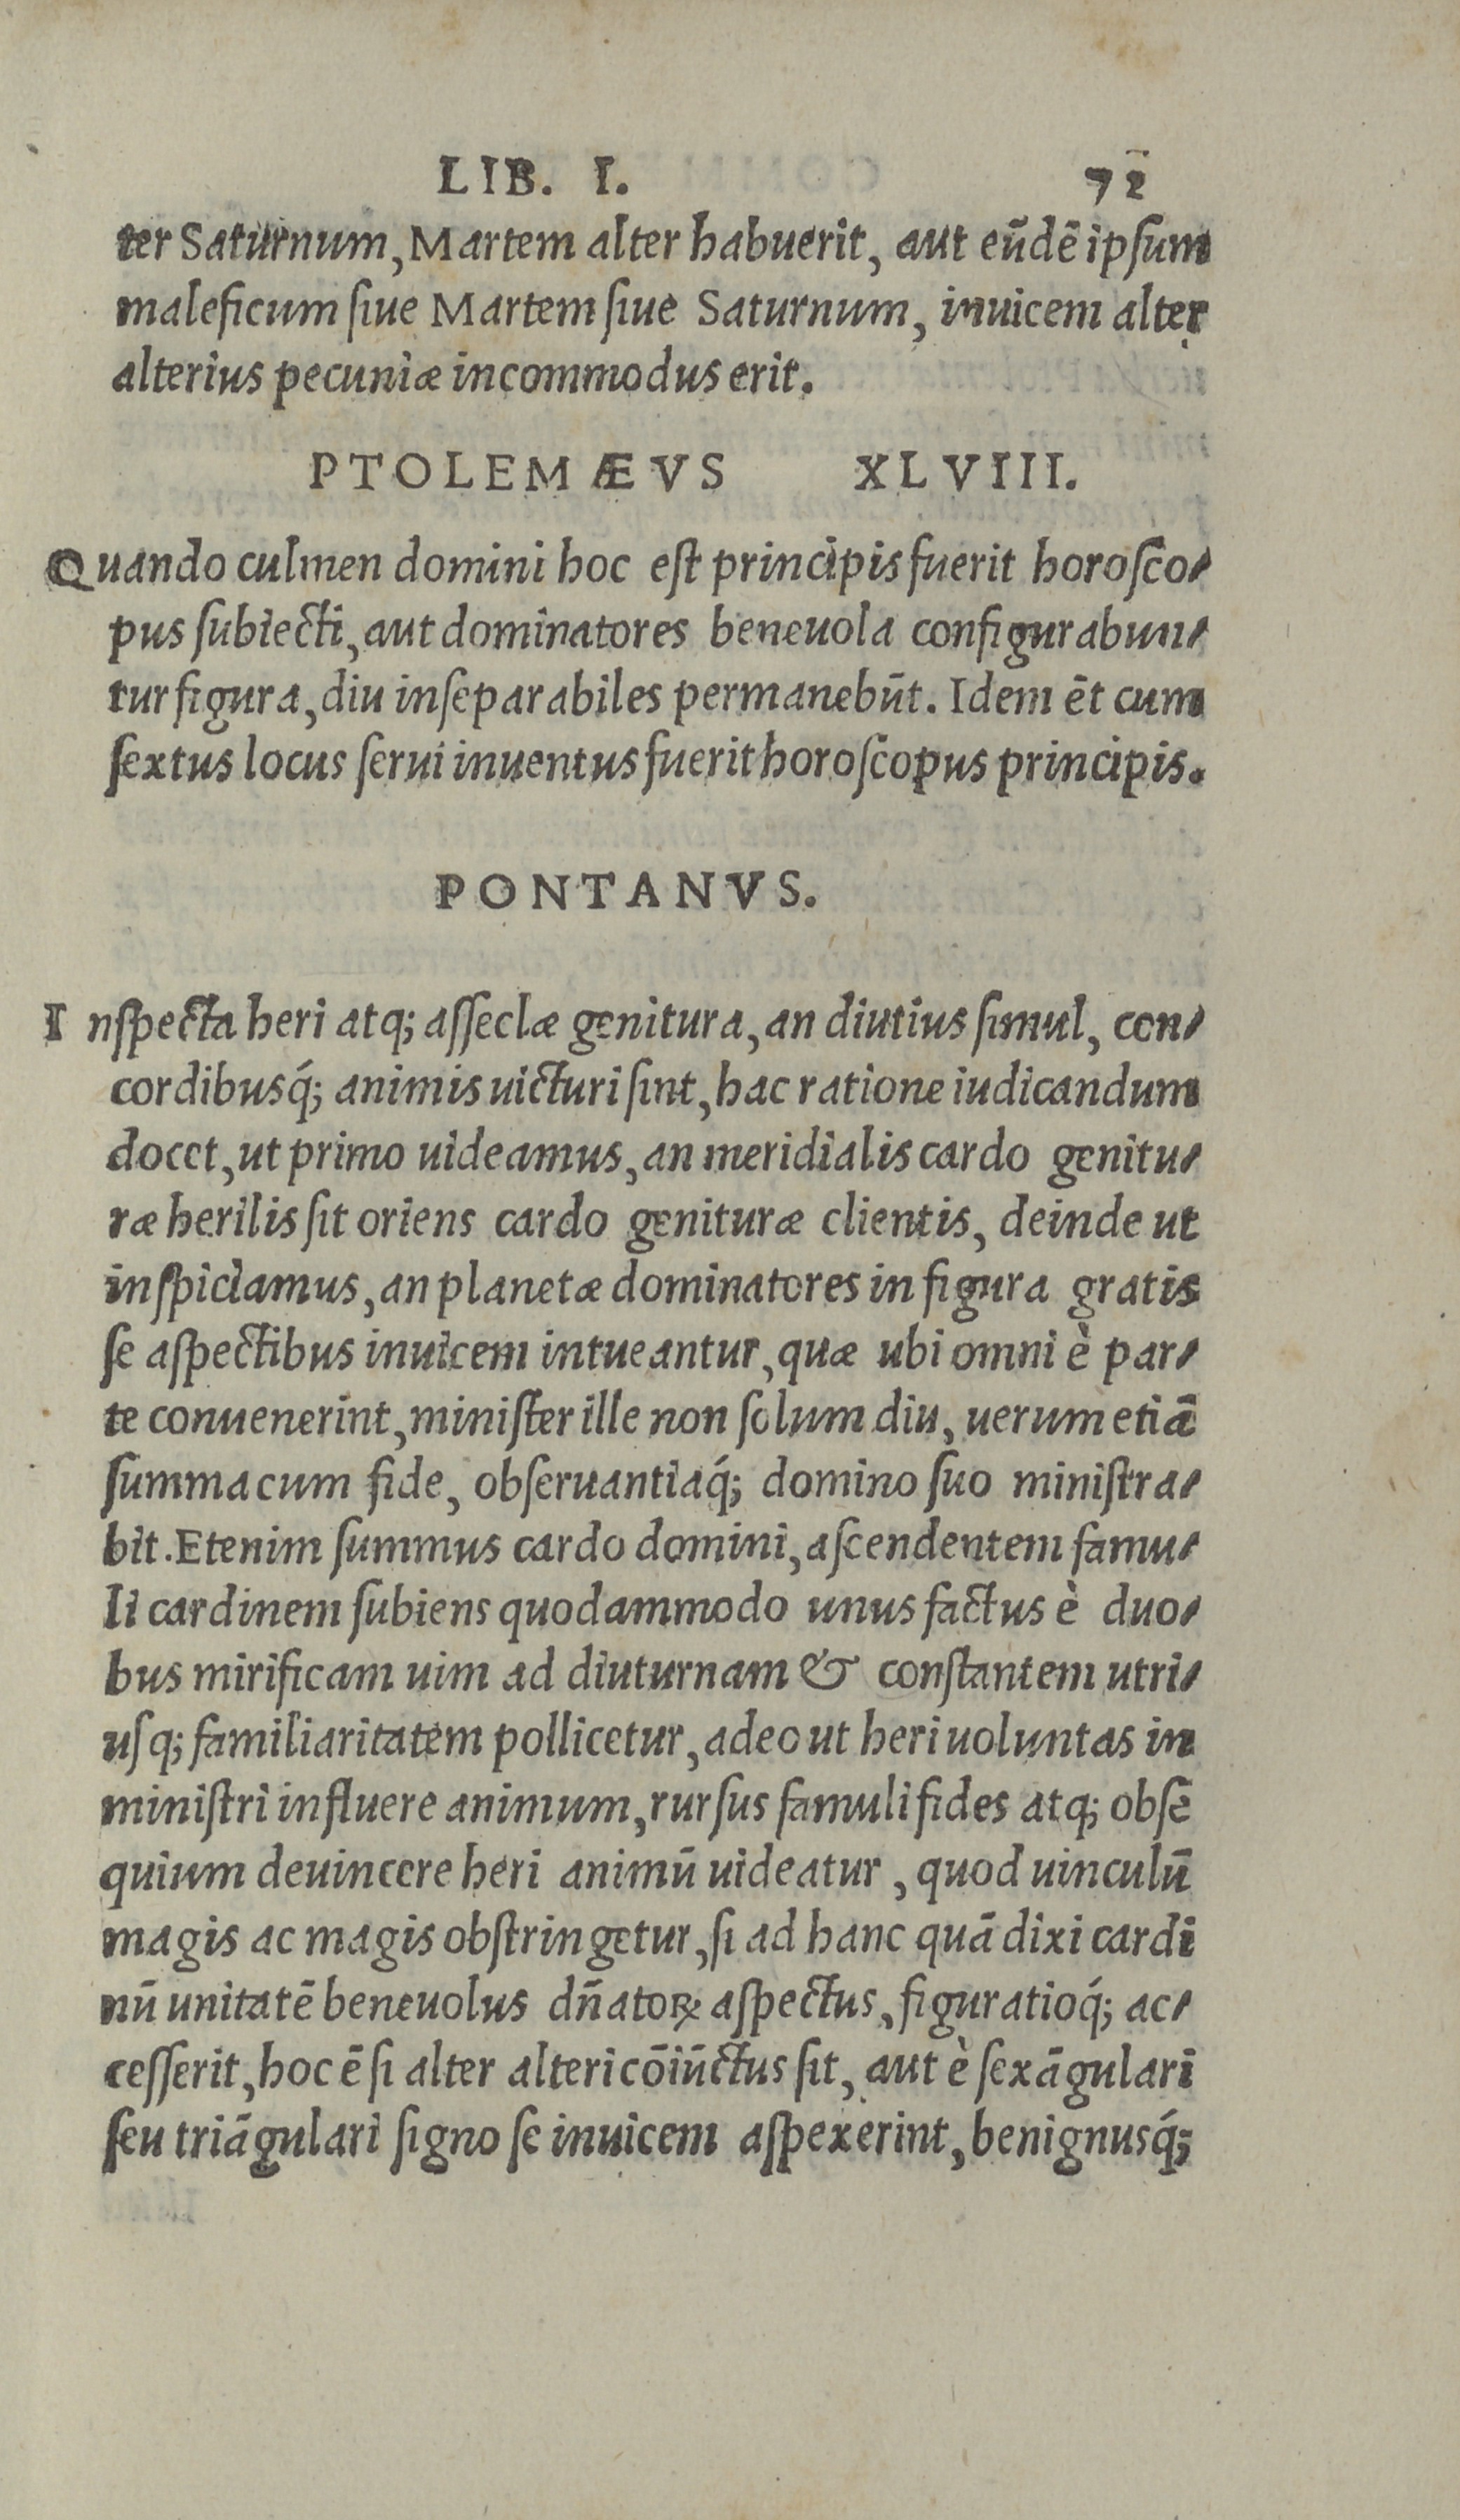 LIB. I. 72
ter Saturnum, Martem alter habuerit, aut eũdẽ ipſum
maleficum ſiue Martem ſiue Saturnum, inuicem alter
alterius pecuniæ incommodus erit.
PTOLEMÆVS XLVIII.
Quando culmen domini hoc eſt principis fuerit horoſco-
pus ſubiecti, aut dominatores beneuola configurabun-
tur figura, diu inſeparabiles permanebũt. Idem ẽt cum
ſextus locus ſerui inuentus fuerit horoſcopus principis.
PONTANVS.
Inſpecta heri atq; aſſeclæ genitura, an diutius ſimul, con-
cordibusq́; animis uicturi ſint, hac ratione iudicandum
docet, ut primo uideamus, an meridialis cardo genitu-
ræ herilis ſit oriens cardo genituræ clientis, deinde ut
inſpiciamus, an planetæ dominatores in figura gratis
ſe aſpectibus inuicem intueantur, quæ ubi omni è par-
te conuenerint, miniſter ille non ſolum diu, uerum etiã
ſumma cum fide, obſeruantiaq́; domino ſuo miniſtra-
bit. Etenim ſummus cardo domini, aſcendentem famu-
li cardinem ſubiens quodammodo unus factus è duo-
bus mirificam uim ad diuturnam & conſtantem utri-
uſq; familiaritatem pollicetur, adeo ut heri uoluntas in
miniſtri influere animum, rurſus famuli fides atq; obſe
quium deuincere heri animũ uideatur, quod uinculũ
magis ac magis obſtringetur, ſi ad hanc quã dixi cardi
nũ unitatẽ beneuolus dñatoꝝ aſpectus, figuratioq́; ac-
ceſſerit, hoc ẽ ſi alter alteri cõiũctus ſit, aut è ſexãgulari
ſeu triãgulari ſigno ſe inuicem aſpexerint, benignusq́;